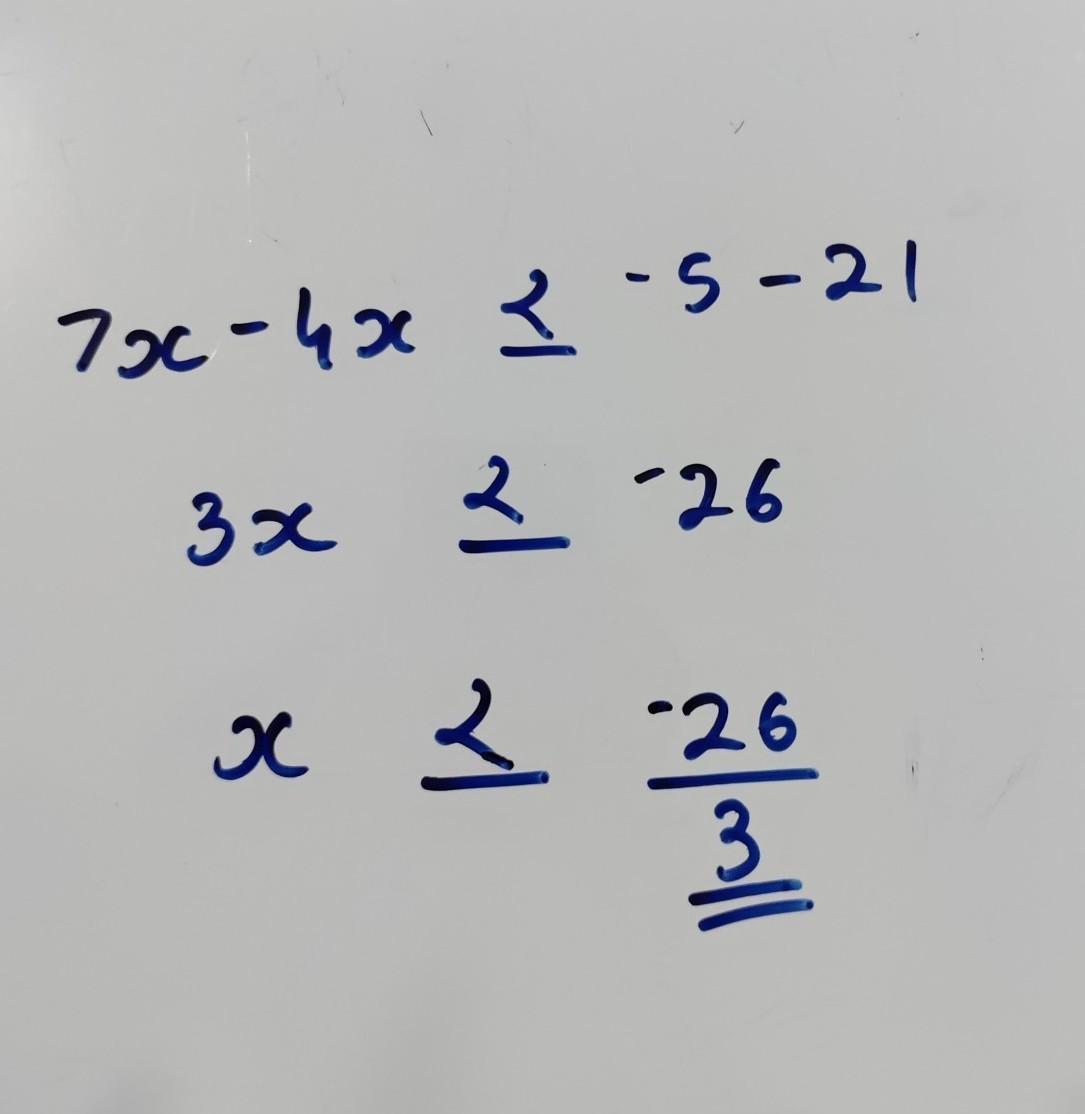 7x - 4x ≤ -5 - 21
3x ≤ -26
x ≤ -26/3